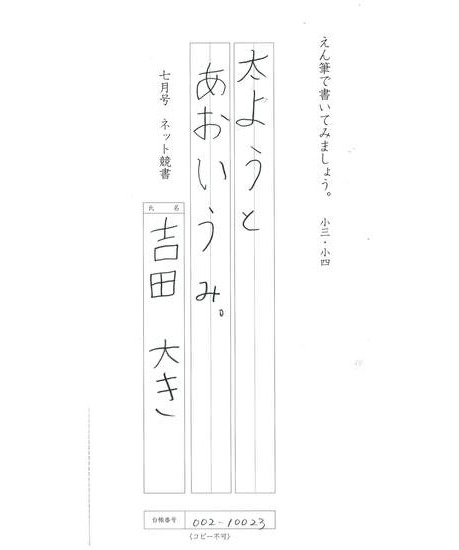 えん筆で書いてみましょう。 小三・小四
太ようと
あおいうみ。
七月号 ネット競書
氏名
吉田 大き
台帳番号 002-10023
(コピー不可)